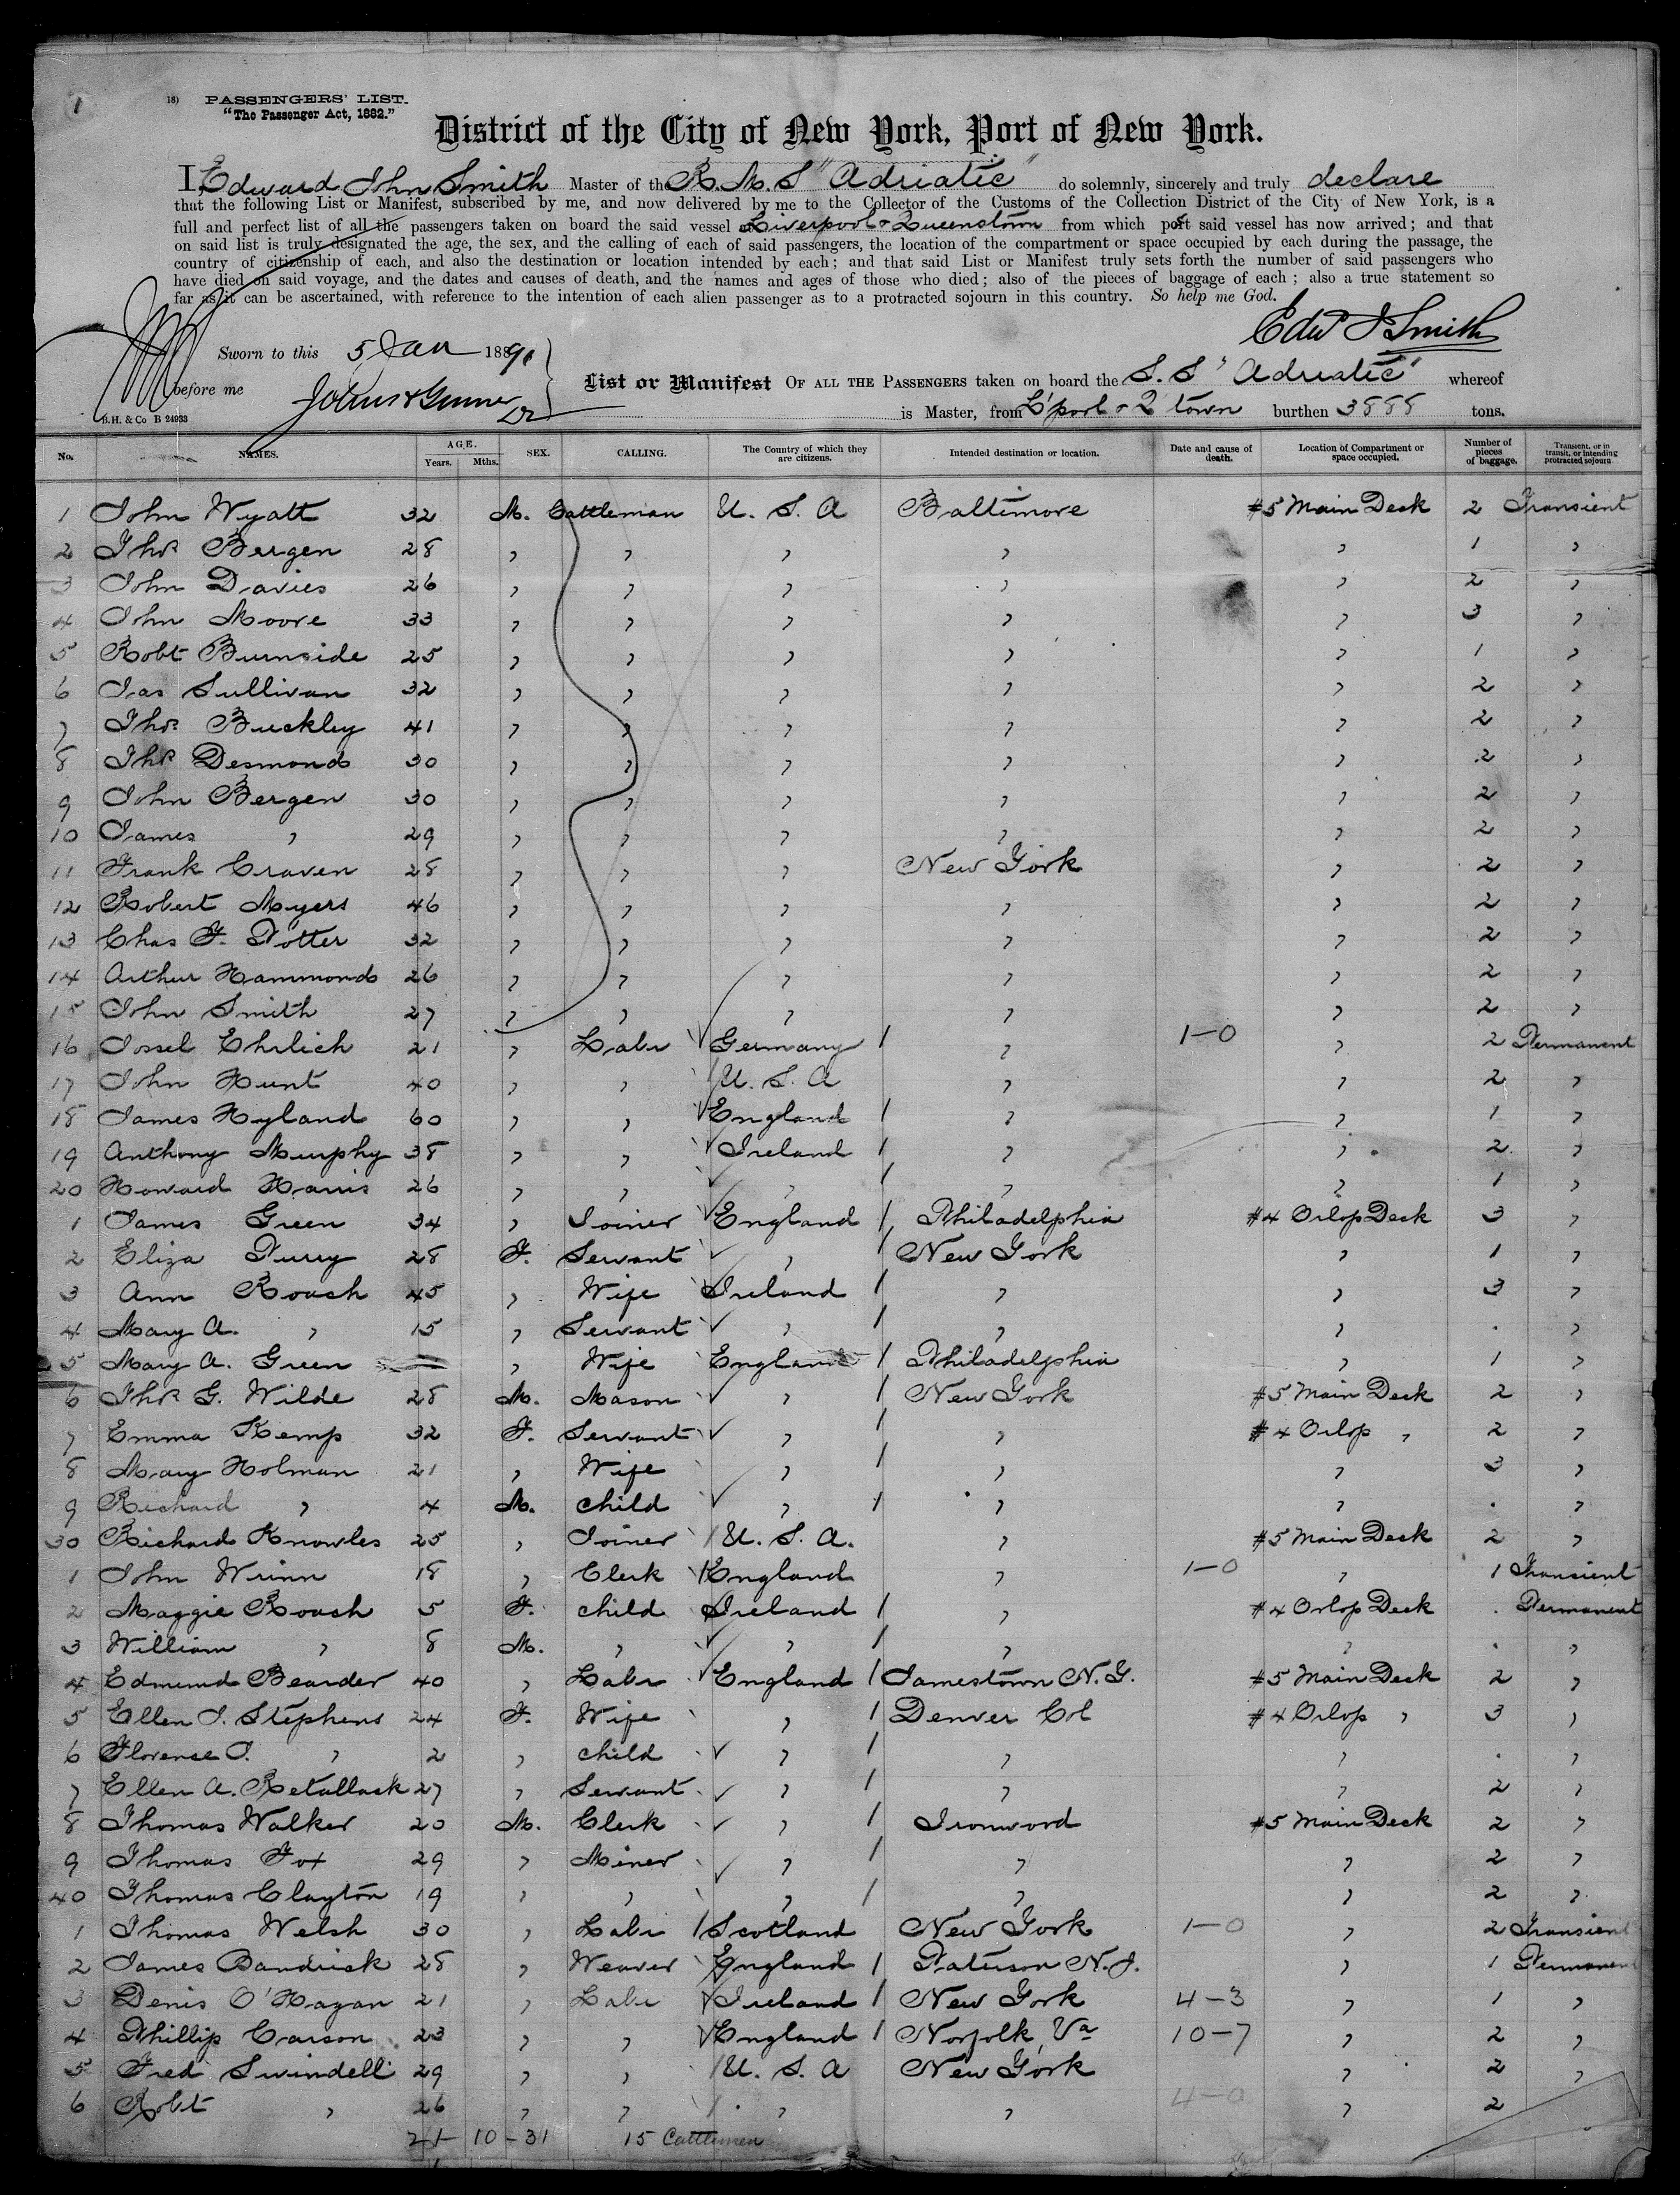 1
18) PASSENGERS' LIST.
"The Passenger Act, 1882."
District of the City of New York, Port of New York.
I Edward John Smith Master of the R.M.S "Adriatic" do solemnly, sincerely and truly declare
that the following List or Manifest, subscribed by me, and now delivered by me to the Collector of the Customs of the Collection District of the City of New York, is a
full and perfect list of all the passengers taken on board the said vessel at Liverpool & Queenstown from which port said vessel has now arrived; and that
on said list is truly designated the age, the sex, and the calling of each of said passengers, the location of the compartment or space occupied by each during the passage, the
country of citizenship of each, and also the destination or location intended by each; and that said List or Manifest truly sets forth the number of said passengers who
have died on said voyage, and the dates and causes of death, and the names and ages of those who died; also of the pieces of baggage of each; also a true statement so
far as it can be ascertained, with reference to the intention of each alien passenger as to a protracted sojourn in this country. So help me God.
Edwd J Smith
Sworn to this 5 Jan 1889
before me
List or Manifest OF ALL THE PASSENGERS taken on board the S.S "Adriatic" whereof
is Master, from L'pool & Q'town burthen 3888 tons.
B.H. & Co B 24933
No. NAMES. AGE. Years. Mths. SEX. CALLING. The Country of which they are citizens. Intended destination or location. Date and cause of death. Location of Compartment or space occupied. Number of pieces of baggage. Transient, or in transit, or intending protracted sojourn.
1 John Wyatt 32 M. Cattleman U. S. A Baltimore #5 Main Deck 2 Transient
2 Thos Bergen 28 " " " " " 1 "
3 John Davies 26 " " " " " 2 "
4 John Moore 33 " " " " " 3 "
5 Robt Burnside 25 " " " " " 1 "
6 Jas Sullivan 32 " " " " " 2 "
7 Thos Buckley 41 " " " " " 2 "
8 Thos Desmond 30 " " " " " 2 "
9 John Bergen 30 " " " " " 2 "
10 James " 29 " " " " " 2 "
11 Frank Craven 28 " " " New York " 2 "
12 Robert Myers 46 " " " " " 2 "
13 Chas F. Potter 32 " " " " " 2 "
14 Arthur Hammonds 26 " " " " " 2 "
15 John Smith 27 " " " " " 2 "
16 Jossel Ehrlich 21 " Labr Germany " 1-0 " 2 Permanent
17 John Hunt 40 " " U. S. A " " 2 "
18 James Hyland 60 " " England " " 1 "
19 Anthony Murphy 38 " " Ireland " " 2 "
20 Howard Harris 26 " " " " " 1 "
1 James Green 34 " Joiner England Philadelphia #4 Orlop Deck 3 "
2 Eliza Purry 28 F. Servant " New York " 1 "
3 Ann Roash 45 " Wife Ireland " " 3 "
4 Mary A. " 15 " Servant " " " . "
5 Mary A. Green " Wife England Philadelphia " 1 "
6 Thos G. Wilde 28 M. Mason " New York #5 Main Deck 2 "
7 Emma Kemp 32 F. Servant " " #4 Orlop " 2 "
8 Mary Holman 21 " Wife " " " 3 "
9 Richard " 4 M. child " " " . "
30 Richard Knowles 25 " Joiner U. S. A. " #5 Main Deck 2 "
1 John Wrinn 18 " Clerk England " 1-0 " 1 Transient
2 Maggie Roash 5 F. child Ireland " #4 Orlop Deck . Permanent
3 William " 8 M. " " " " . "
4 Edmund Bearder 40 " Labr England Jamestown N.Y. #5 Main Deck 2 "
5 Ellen J. Stephens 24 F. Wife " Denver Col #4 Orlop " 3 "
6 Florence J. " 2 " child " " " . "
7 Ellen A. Retallack 27 " Servant " " " 2 "
8 Thomas Walker 20 M. Clerk " Ironwood #5 Main Deck 2 "
9 Thomas Fox 29 " Miner " " " 2 "
40 Thomas Clayton 19 " " " " " 2 "
1 Thomas Welsh 30 " Labr Scotland New York 1-0 " 2 Transient
2 James Bandrick 28 " Weaver England Paterson N.J. " 1 Permanent
3 Denis O'Hagan 21 " Labr Ireland New York 4-3 " 1 "
4 Phillip Carson 23 " " England Norfolk Va 10-7 " 2 "
5 Fred Swindell 29 " " U. S. A New York " 2 "
6 Robt " 26 " " " " 4-0 " 2
21- 10-31 15 Cattlemen